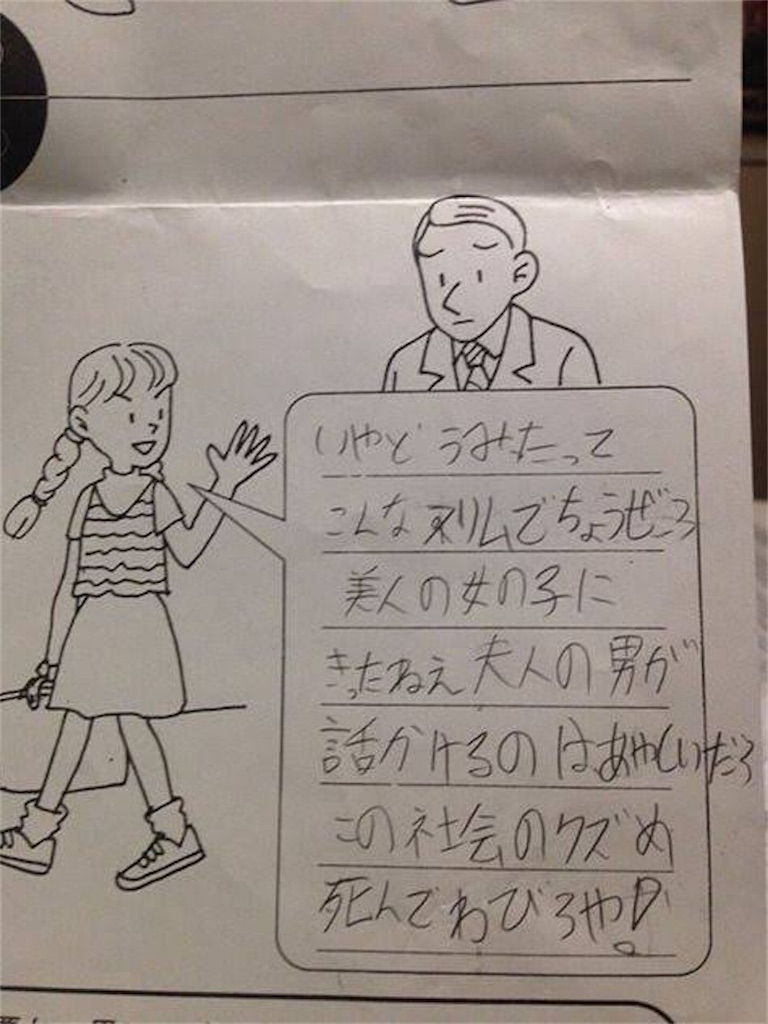 いやどうみたって
こんなスリムでちょうぜころ
美人の女の子に
きったねえ夫人の男が
話かけるのはあやしいだろ
この社会のクズめ
死んでわびろや!